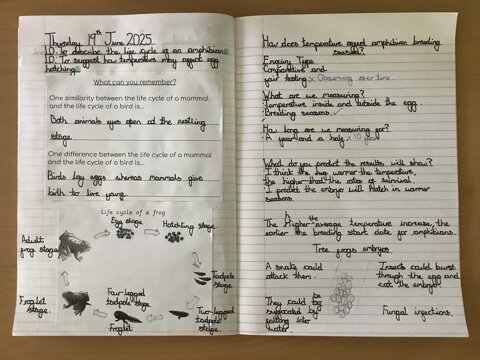 Thursday 19th June 2025
LO: To describe the life cycle of an amphibian
LO: To suggest how temperature may affect egg
hatching.
What can you remember?
One similarity between the life cycle of a mammal
and the life cycle of a bird is...
Both animals eyes open at the nestling
stage.
One difference between the life cycle of a mammal
and the life cycle of a bird is...
Birds lay eggs whereas mammals give
birth to live young.
Life cycle of a frog
Egg stage
Hatchling stage.
Tadpole
stage.
Two-legged
tadpole
stage.
Four-legged
tadpole stage.
Froglet
Froglet
stage.
Adult
frog stage
How does temperature affect amphibian breeding
seasons?
Enquiry Type
Comparitive and
fair testing. x Observing over time.
What are we measuring?
Temperature inside and outside the egg.
Breeding seasons.
How long are we measuring for?
A year and a half. 10 years
What do you predict the results will show?
I think the
warmer the temperature,
the higher the rates of survival.
I predict the embryo will hatch in warmer
seasons.
As the
The Higher average temperature increase, the
earlier the breeding start date for amphibians.
Tree frogs embryos
A snake could
attack them.
Insects could burst
through the egg and
eat the embryo.
They could be
suffocated by
falling into
water.
Fungal infections.